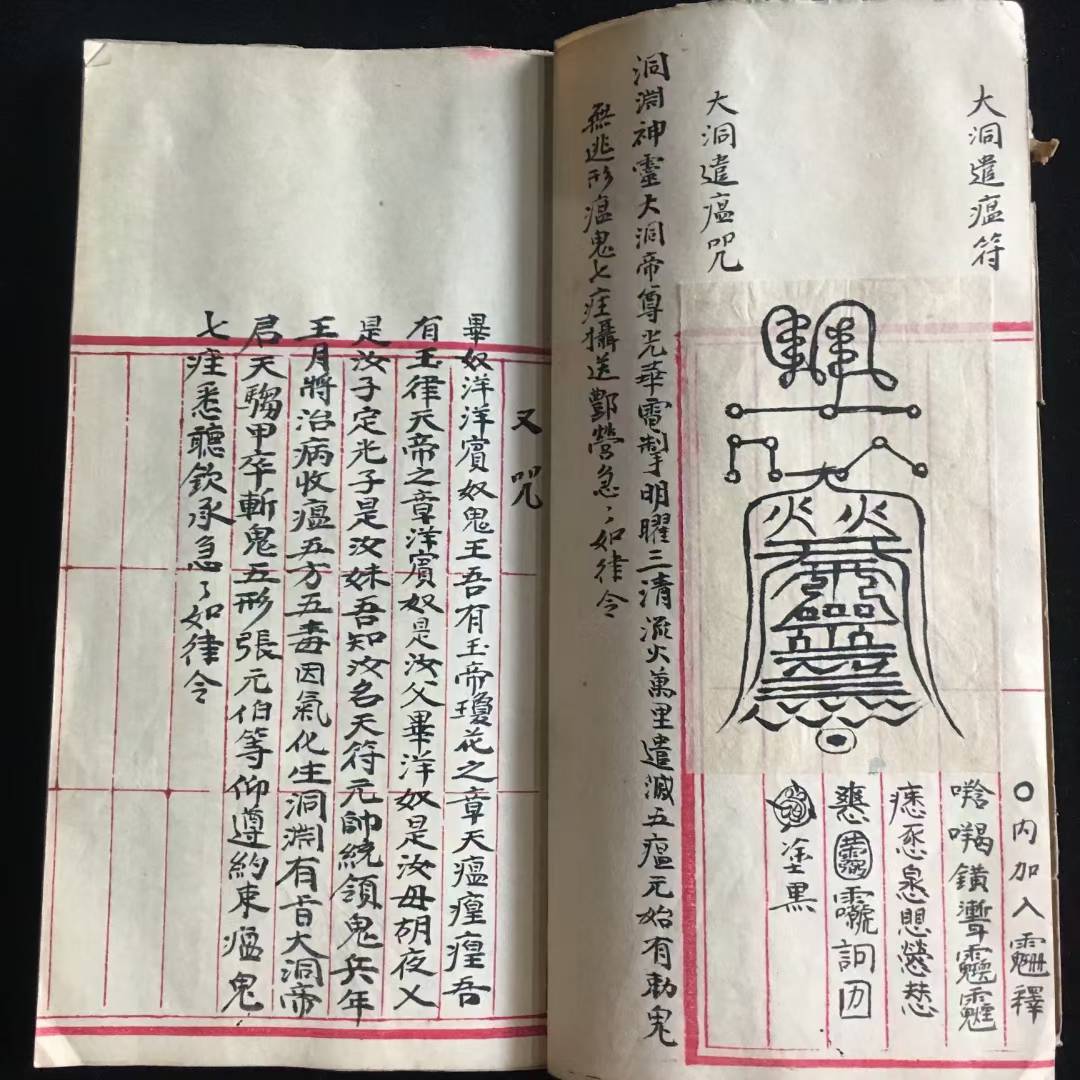 大洞遣瘟符
〇內加入
塗黑
大洞遣瘟咒
洞淵神靈大洞帝尊光華電掣明曜三清流火萬里遣滅五瘟元始有勅鬼
無逃形瘟鬼七疰攝送酆營急〻如律令
又咒
畢奴洋洋賓奴鬼王吾有玉帝瓊花之章天瘟瘽瘽吾
有玉律天帝之章洋賓奴是汝父畢洋奴是汝母胡夜乂
是汝子定光子是汝妹吾知汝名天符元帥統領鬼兵年
王月將治病收瘟五方五毒因氣化生洞淵有旨大洞帝
君天騶甲卒斬鬼五形張元伯等仰遵約束瘟鬼
七疰悉聽欽承急〻如律令